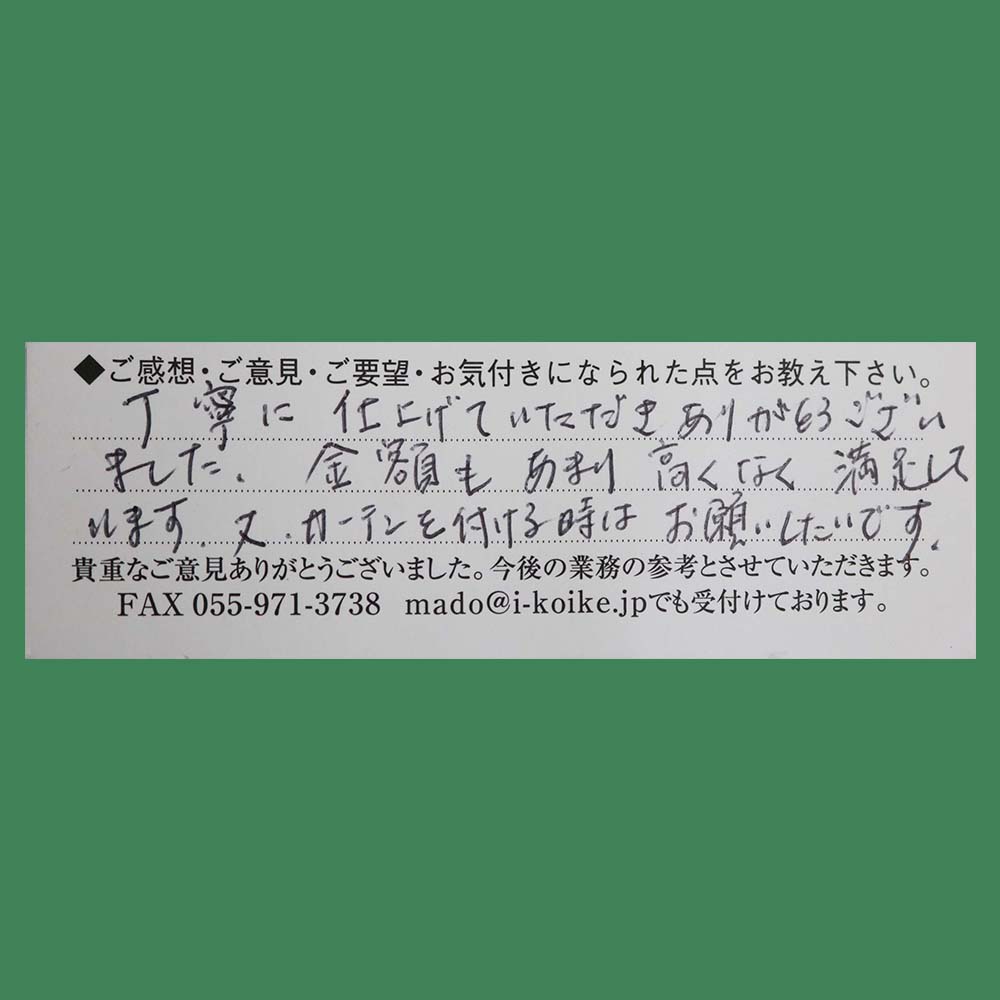 ◆ご感想・ご意見・ご要望・お気付きになられた点をお教え下さい。
丁寧に仕上げていただきありがとうござい
ました。金額もあまり高くなく満足して
います。又、カーテンを付ける時はお願いしたいです。
貴重なご意見ありがとうございました。今後の業務の参考とさせていただきます。
FAX 055-971-3738 mado@i-koike.jpでも受付けております。